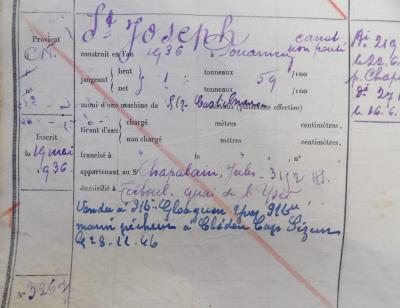 St Joseph
canot
non ponté
Provient
construit en l'an 1936 Douarnenez
CM.
jaugeant
brut
tonneaux 59 /100
net 1
tonneaux /100
muni d'une machine de (puissance effective)
tirant d'eau
chargé mètres centimètres,
non chargé mètres centimètres.
Inscrit
le 19 mai
1936
francisé à le n°
appartenant au Sr Chapalain, Jules - 3152
domicilié à Tréboul - quai de l'Yser
Vendu à Mb- Gloaguen Yves
marin pêcheur à Cléden Cap Sizun
le 28-11-46
N° 3263
Ai 219
le 22.6.
p. Chap
le 16.6.